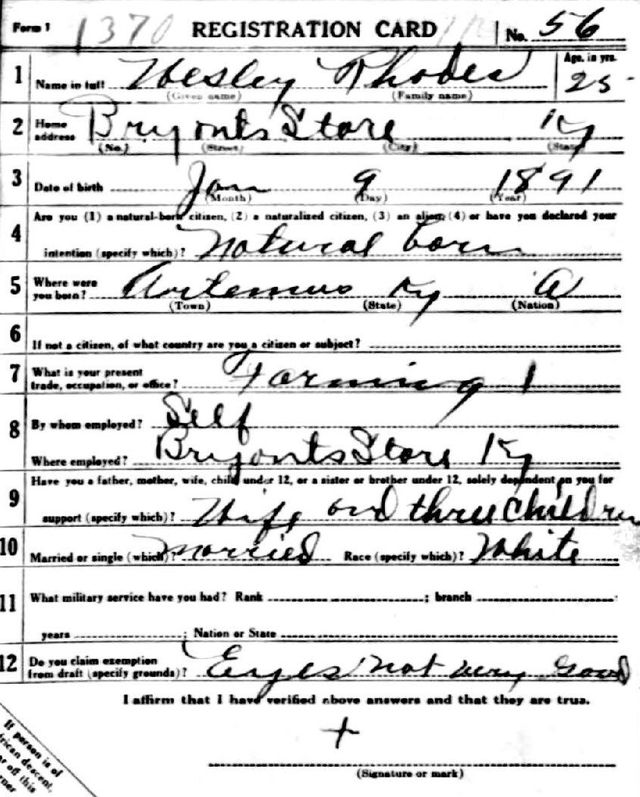 Form 1 1370 REGISTRATION CARD No. 56
1 Name in full Wesley Rhodes Age, in yrs. 25
(Given name) (Family name)
2 Home address Bryonts Store Ky
(No.) (Street) (City) (State)
3 Date of birth Jan 9 1891
(Month) (Day) (Year)
Are you (1) a natural-born citizen, (2) a naturalized citizen, (3) an alien, (4) or have you declared your
4 intention (specify which)? Natural born
5 Where were you born? Artemus Ky A
(Town) (State) (Nation)
6 If not a citizen, of what country are you a citizen or subject?
7 What is your present trade, occupation, or office? Farming 1
8 By whom employed? Self
Where employed? Bryonts Store Ky
9 Have you a father, mother, wife, child under 12, or a sister or brother under 12, solely dependent on you for
support (specify which)? Wife and three Children
10 Married or single (which)? Married Race (specify which)? White
11 What military service have you had? Rank ; branch
years ; Nation or State
12 Do you claim exemption from draft (specify grounds)? Eyes not very Good
I affirm that I have verified above answers and that they are true.
+
(Signature or mark)
If person is of
African descent,
off this
corner